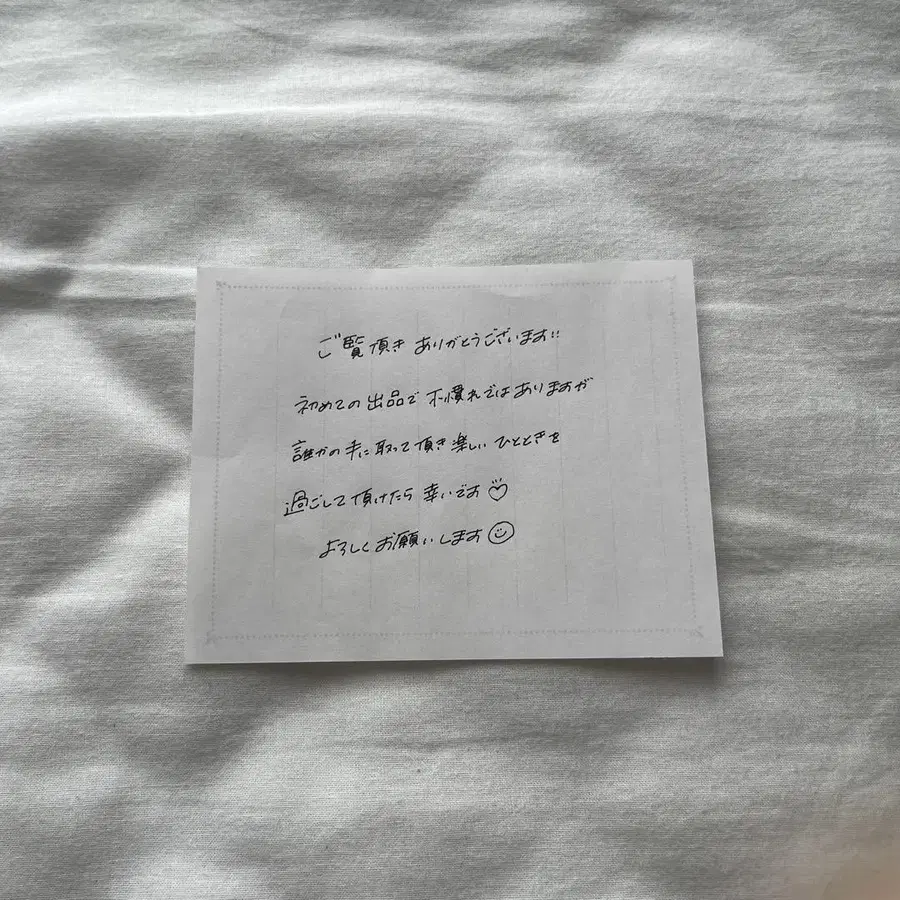 ご覧頂き ありがとうございます!!
初めての出品で 不慣れではありますが
誰かの手に取って頂き楽しいひとときを
過ごして頂けたら幸いです♡
よろしくお願いします☺